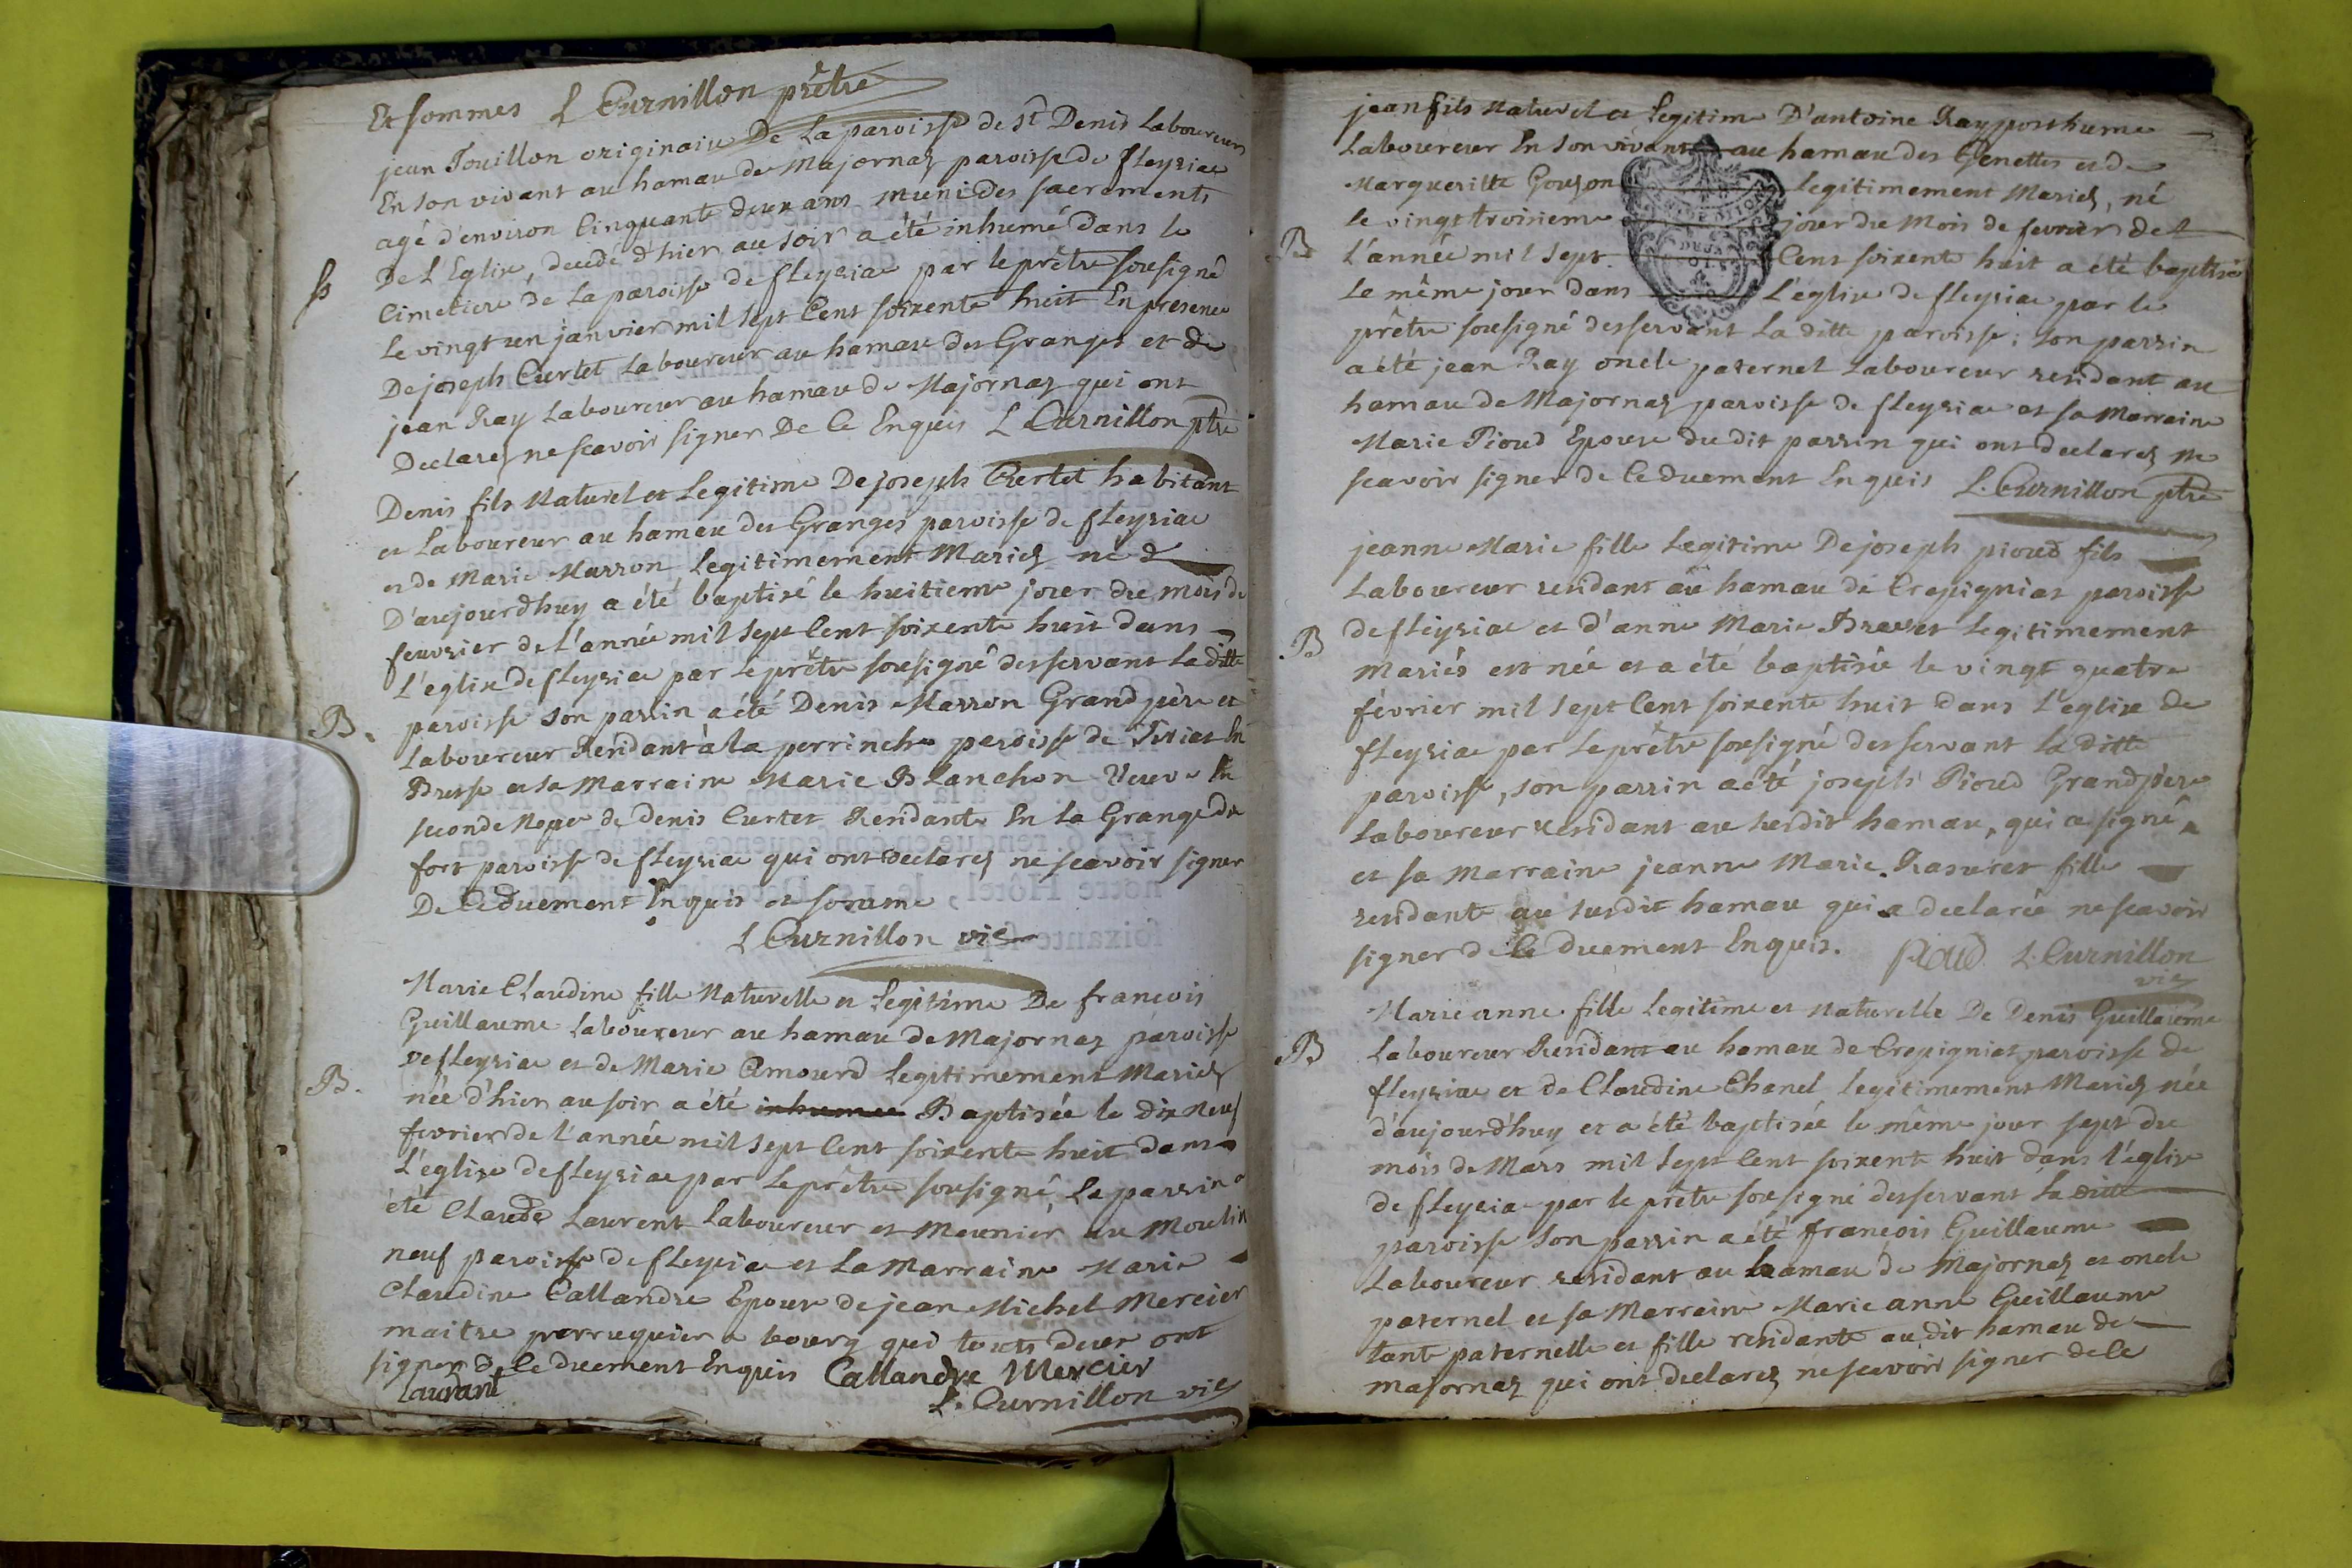 Et sommes L Curnillon prêtre
jean Touillon originaire De La paroisse de St Denis Laboureur
En son vivant au hamau de Majornaz paroisse de fleyriac
agé d'environ Cinquante deux ans muni des sacrements
De L'Eglise, decedé d'hier au soir a été inhumé dans le
Cimetiere de La paroisse de fleyriac par le prêtre sousigné
Le vingt un janvier mil sept Cent soixente huit En presence
De joseph Curtet Laboureur au hamau des Granges et de
jean Ray Laboureur au hamau de Majornaz qui ont
Declarez ne scavoir signer De Ce Enquis L Curnillon ptre
Denis fils Naturel et Legitime De joseph Curtet habitant
et Laboureur au hamau des Granges paroisse de fleyriac
et de Marie Marron Legitimement Mariez né
D'aujourdhuy a été baptisé le huitieme jour du mois de
feuvrier de L'année mil sept Cent soixente huit dans
L'eglise de fleyriac par le prêtre sousigné desservant La ditte
paroisse son parrin a été Denis Marron Grand père et
Laboureur Residant à la perrinche paroisse de Viriat En
Bresse et sa Marraine Marie Blanchon Veuve En
seconde Nopce de denis Curtet Residante En La Grange du
fort paroisse de fleyriac qui ont declarez ne scavoir signer
De Ce duement Enquis et somme
L Curnillon vic
Marie Claudine fille Naturelle et Legitime De francois
Guillaume Laboureur au hamau de Majornaz paroisse
de fleyriac et de Marie Amourd Legitimement Mariez
née d'hier au soir a été inhumee Baptisée le dix neuf
fevrier de l'année mil sept Cent soixente huit dans
L'eglise de fleyriac par Le prêtre sousigné, Le parrin a
été Claude Laurent Laboureur et Meunier au Moulin
neuf paroisse de fleyriac et La Marraine Marie
Claudine Callandre Epouse de jean Michel Mercier
maitre perruquier a bourg qui touts deux ont
signer de Ce duement Enquis Callandre Mercier
Laurant L. Curnillon vic
jean fils Naturel et Legitime D'antoine Ray posthume
Laboureur En son vivant au hamau des Genettes et de
Margueritte Gouzon legitimement Mariez, né
le vingt troisieme jour du Mois de fevrier de
L'année mil sept Cent soixente huit a été baptisé
Le même jour dans L'eglise de fleyriac par le
prêtre sousigné desservant La ditte paroisse; son parrin
a été jean Ray oncle paternel Laboureur residant au
hamau de Majornaz paroisse de fleyriac et sa Marraine
Marie Pioud Epouse du dit parrin qui ont declarez ne
scavoir signer de Ce duement Enquis L. Curnillon ptre
jeanne Marie fille Legitime De joseph pioud fils
Laboureur residant au hamau de Crepigniat paroisse
de fleyriac et d'anne Marie Brevet Legitimement
mariés est née et a été baptisée le vingt quatre
février mil sept Cent soixente huit dans L'eglise de
fleyriac par Le prêtre sousigné desservant La ditte
paroisse, son parrin a été joseph Pioud Grand père
Laboureur residant au susdit hamau, qui a signé,
et sa marraine jeanne Marie Rasuret fille
residante au susdit hamau qui a declarée ne scavoir
signer de Ce duement Enquis. Pioud L. Curnillon
vic
Marie anne fille Legitime et Naturelle De Denis Guillaume
Laboureur Residant au hamau de Crepigniat paroisse de
fleyriac et de Claudine Chanel legitimement Mariez née
d'aujourd'huy et a été baptisée le même jour sept du
mois de Mars mil sept Cent soixente huit dans l'église
de fleyriac par le prêtre sousigné desservant La ditte
paroisse son parrin a été francois Guillaume
Laboureur residant au hamau de Majornaz et oncle
paternel et sa Marraine Marie anne Guillaume
tante paternelle et fille residante au dit hamau de
majornaz qui ont declarez ne scavoir signer de Ce
B.
B.
B
B
B